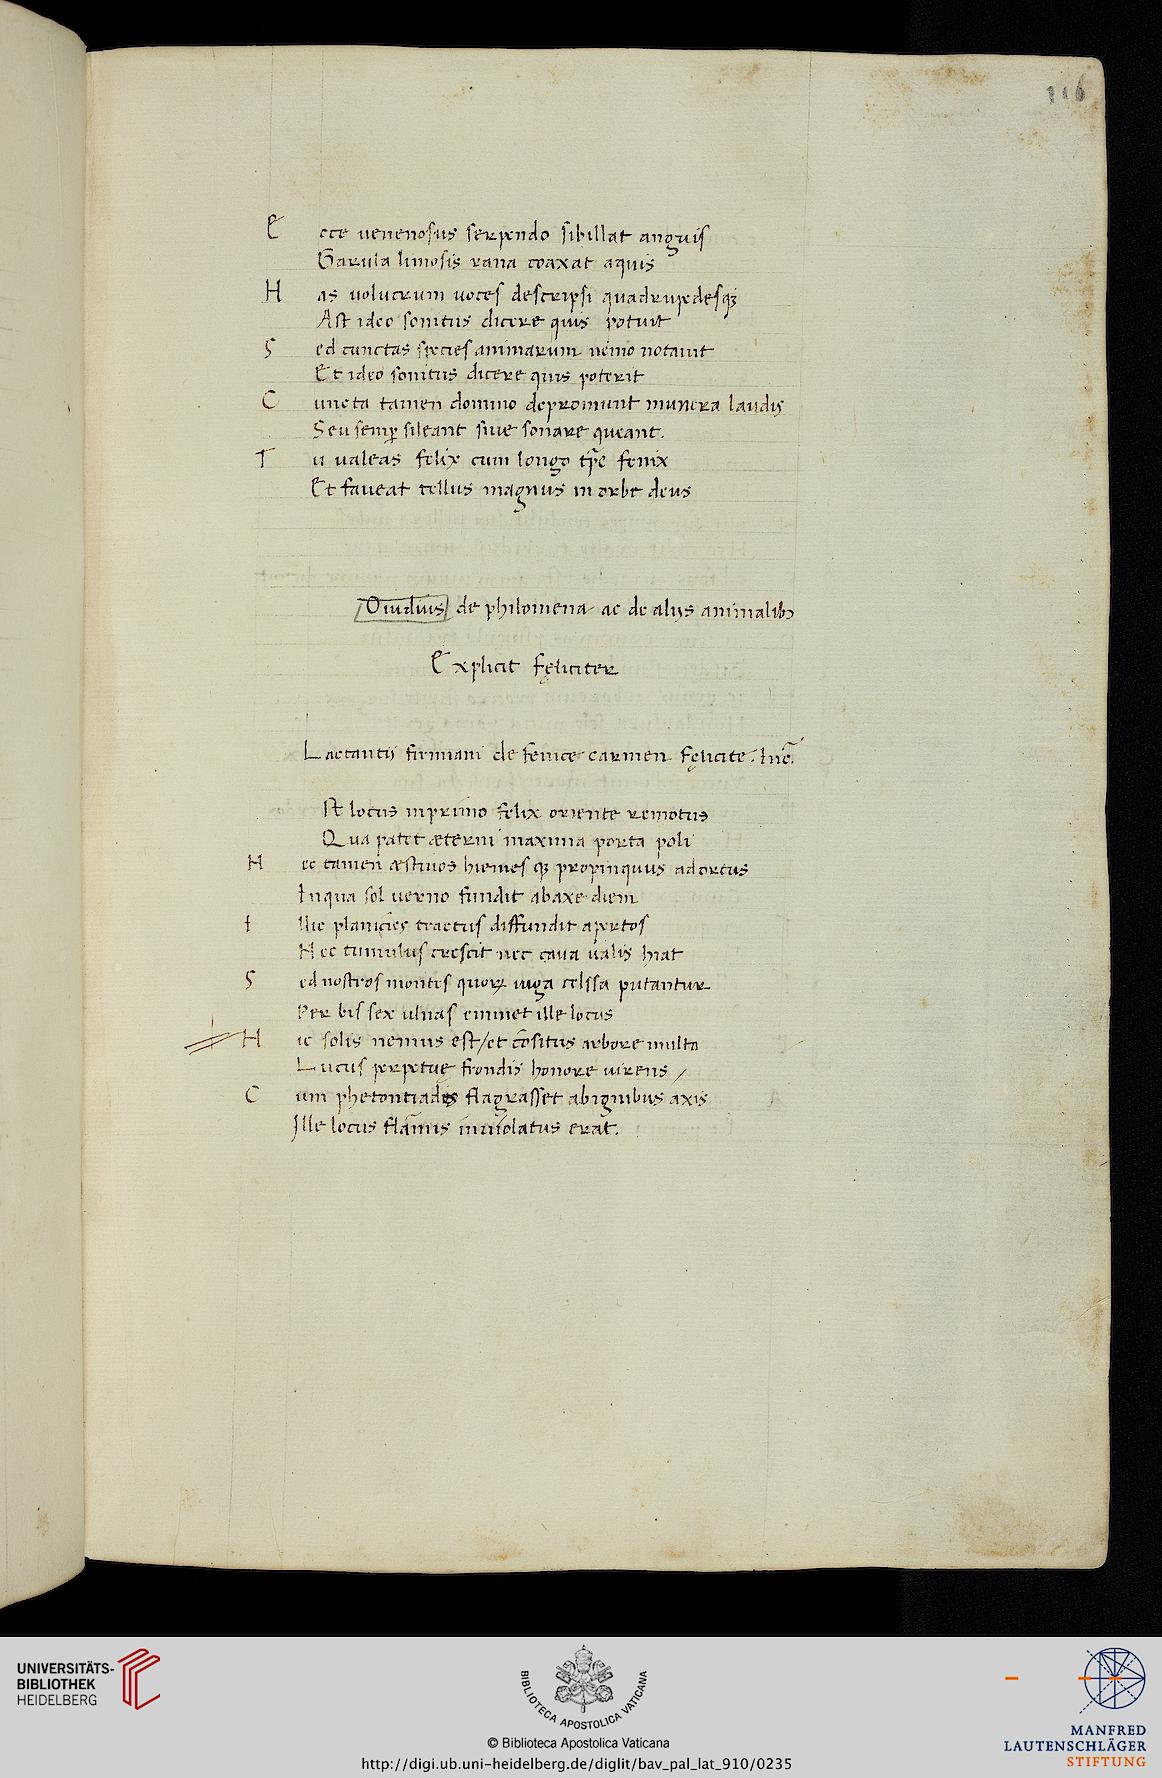 116
E cce uenenosus serpendo sibillat anguis
Garula limosis rana coaxat aquis
H as volucrum uoces descripsi quadrupedesqꝫ
Ast ideo sonitus dicere quis potuit
S ed cunctas species animarum nemo notauit
Et ideo sonitus dicere quis poterit
C uncta tamen domino depromunt munera laudis
Seu semꝑ sileant siue sonare queant.
T u ualeas felix cum longo tp̄e fenix
Et faueat tellus magnus in orbe deus
Ouidius de philomena ac de alijs animalibꝫ
Explicit fęliciter
Lactantij firmiani de fenice carmen fęlicite. Inc̄.
st locus in primo felix oriente remotus
Qua patet æterni maxima porta poli
H ec tamen æstiuos hiemes qꝫ propinquus ad ortus
Inqua sol uerno fundit ab axe diem
I llic planicies tractus diffundit apertos
Nec tumulus crescit nec caua ualis hiat
S ed nostros montes quoꝝ iuga celssa putantur
Per bis sex ulnas eminet ille locus
H ic solis nemus est/et cōsitus arbore multa
Lucus perpetuę frondis honore uirens /
C um phetontiades flagrasset abignibus axis
Ille locus flāmis inuiolatus erat.
UNIVERSITÄTS-
BIBLIOTHEK
HEIDELBERG
BIBLIOTECA APOSTOLICA VATICANA
© Biblioteca Apostolica Vaticana
http://digi.ub.uni-heidelberg.de/diglit/bav_pal_lat_910/0235
MANFRED
LAUTENSCHLÄGER
STIFTUNG